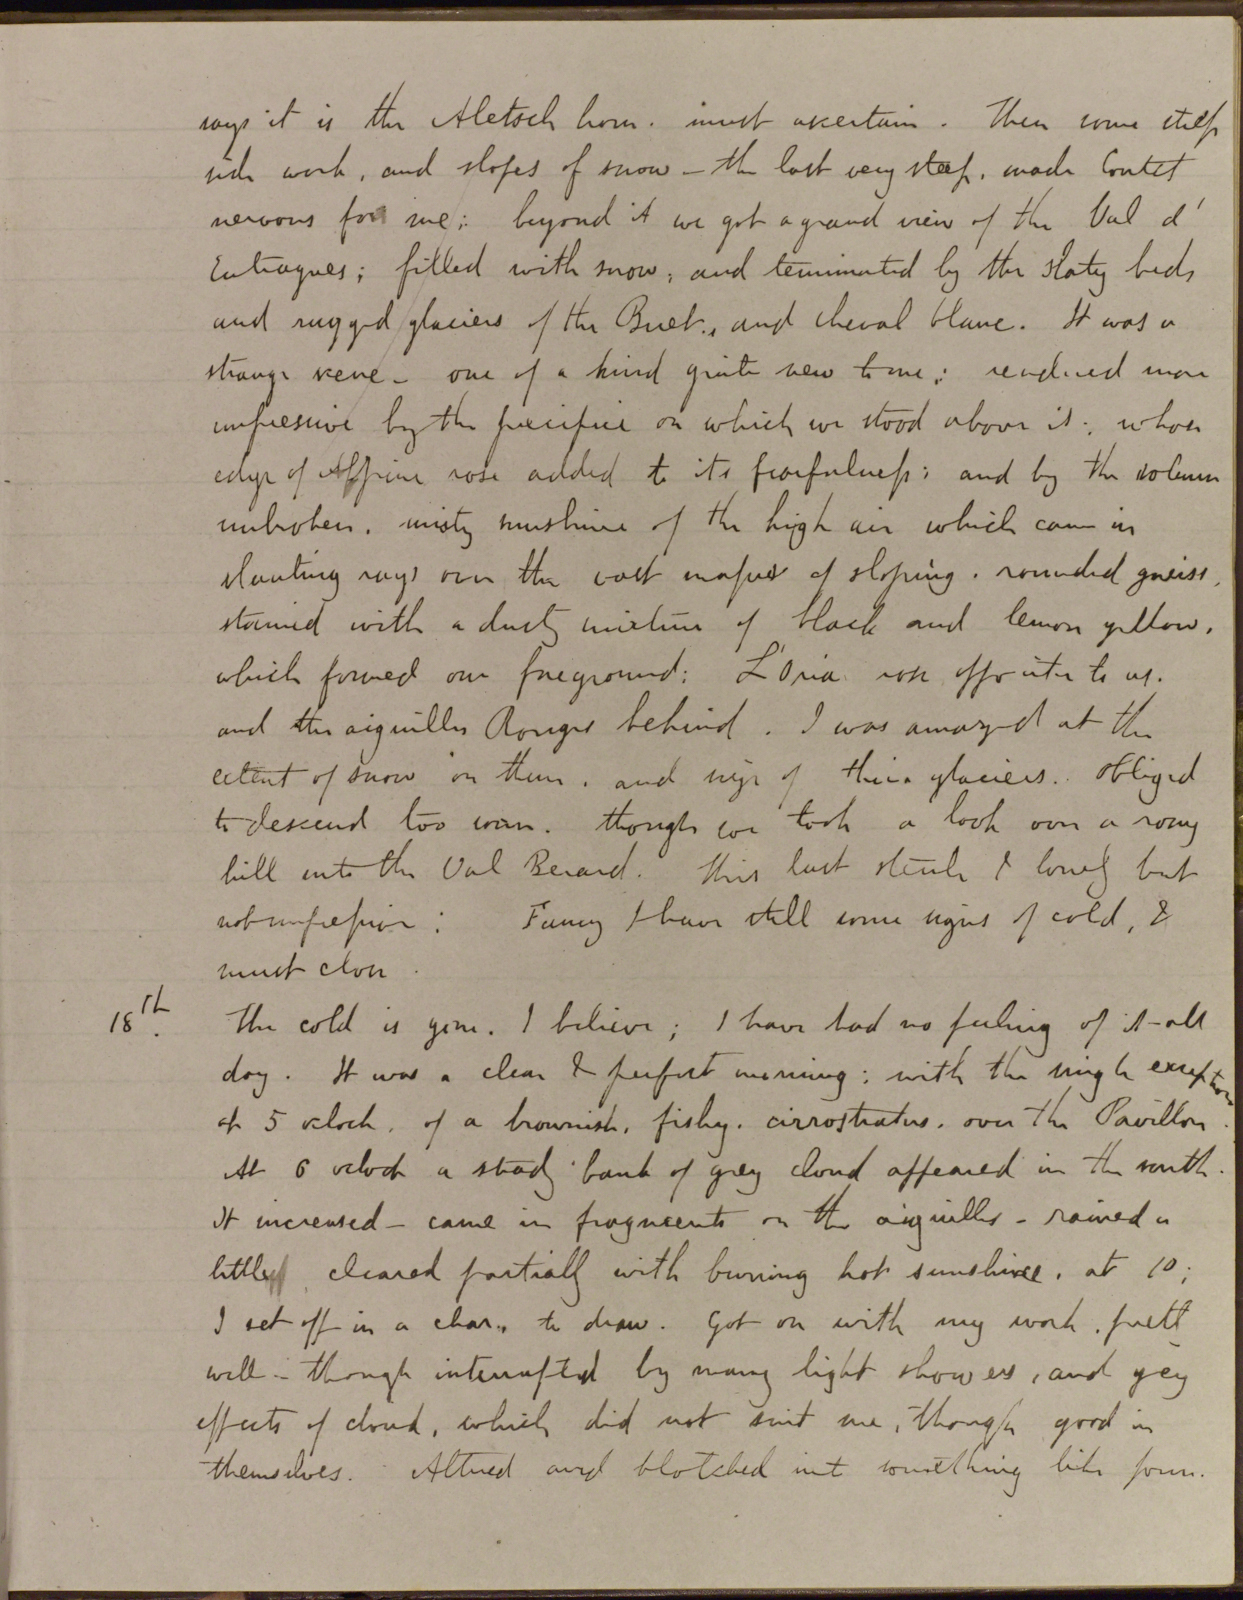 says it is the Aletsch horn. must ascertain. Then some steep
side work, and slopes of snow – the last very steep. made Coutet
nervous for me; beyond it we got a grand view of the Val d'
Entragues; filled with snow; and terminated by the slaty beds
and rugged glaciers of the Buet., and cheval blanc. It was a
strange scene – one of a kind quite new to me; rendered more
impressive by the precipice on which we stood above it; whose
edge of Alpine rose added to its fearfulness; and by the solemn
unbroken, misty sunshine of the high air which came in
slanting rays over the vast masses of sloping, rounded gneiss,
stained with a dusty mixture of black and lemon yellow,
which formed our foreground; L'Oria rose opposite to us.
and the aiguilles Rouges behind. I was amazed at the
extent of snow on them, and size of their glaciers. Obliged
to descend too soon. though we took a look over a
hill into the Val Berard. This last sterile & lonely but
not impressive; Fancy I have still some signs of cold, &
must close.
18th. The cold is gone. I believe; I have had no feeling of it all
day. It was a clear & perfect morning; with the single exception
at 5 oclock, of a brownish, fishy. cirrostratus. over the Pavillon.
At 6 oclock a steady bank of grey cloud appeared in the south.
It increased – came in fragments on the aiguilles – rained a
little cleared partially with burning hot sunshine, at 10;
I set off in a char., to draw. Got on with my work, prett
well – though interrupted by many light showers, and grey
effects of cloud, which did not suit me, though good in
themselves. Altered and blotched int something like form.